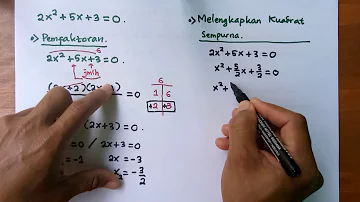 2x² + 5x + 3 = 0.
a) Pemfaktoran.
6
2x² + 5x + 3 = 0.
jmlh
(2x+2)(2x = 0
6
1 6
+2 +3
(2x+3) = 0.
= 0 / 2x+3 = 0
= -1 2x = -3
x₂ = -3/2
b) Melengkapkan Kuadrat
Sempurna.
2x² + 5x + 3 = 0
x² + 5/2 x + 3/2 = 0
x² +